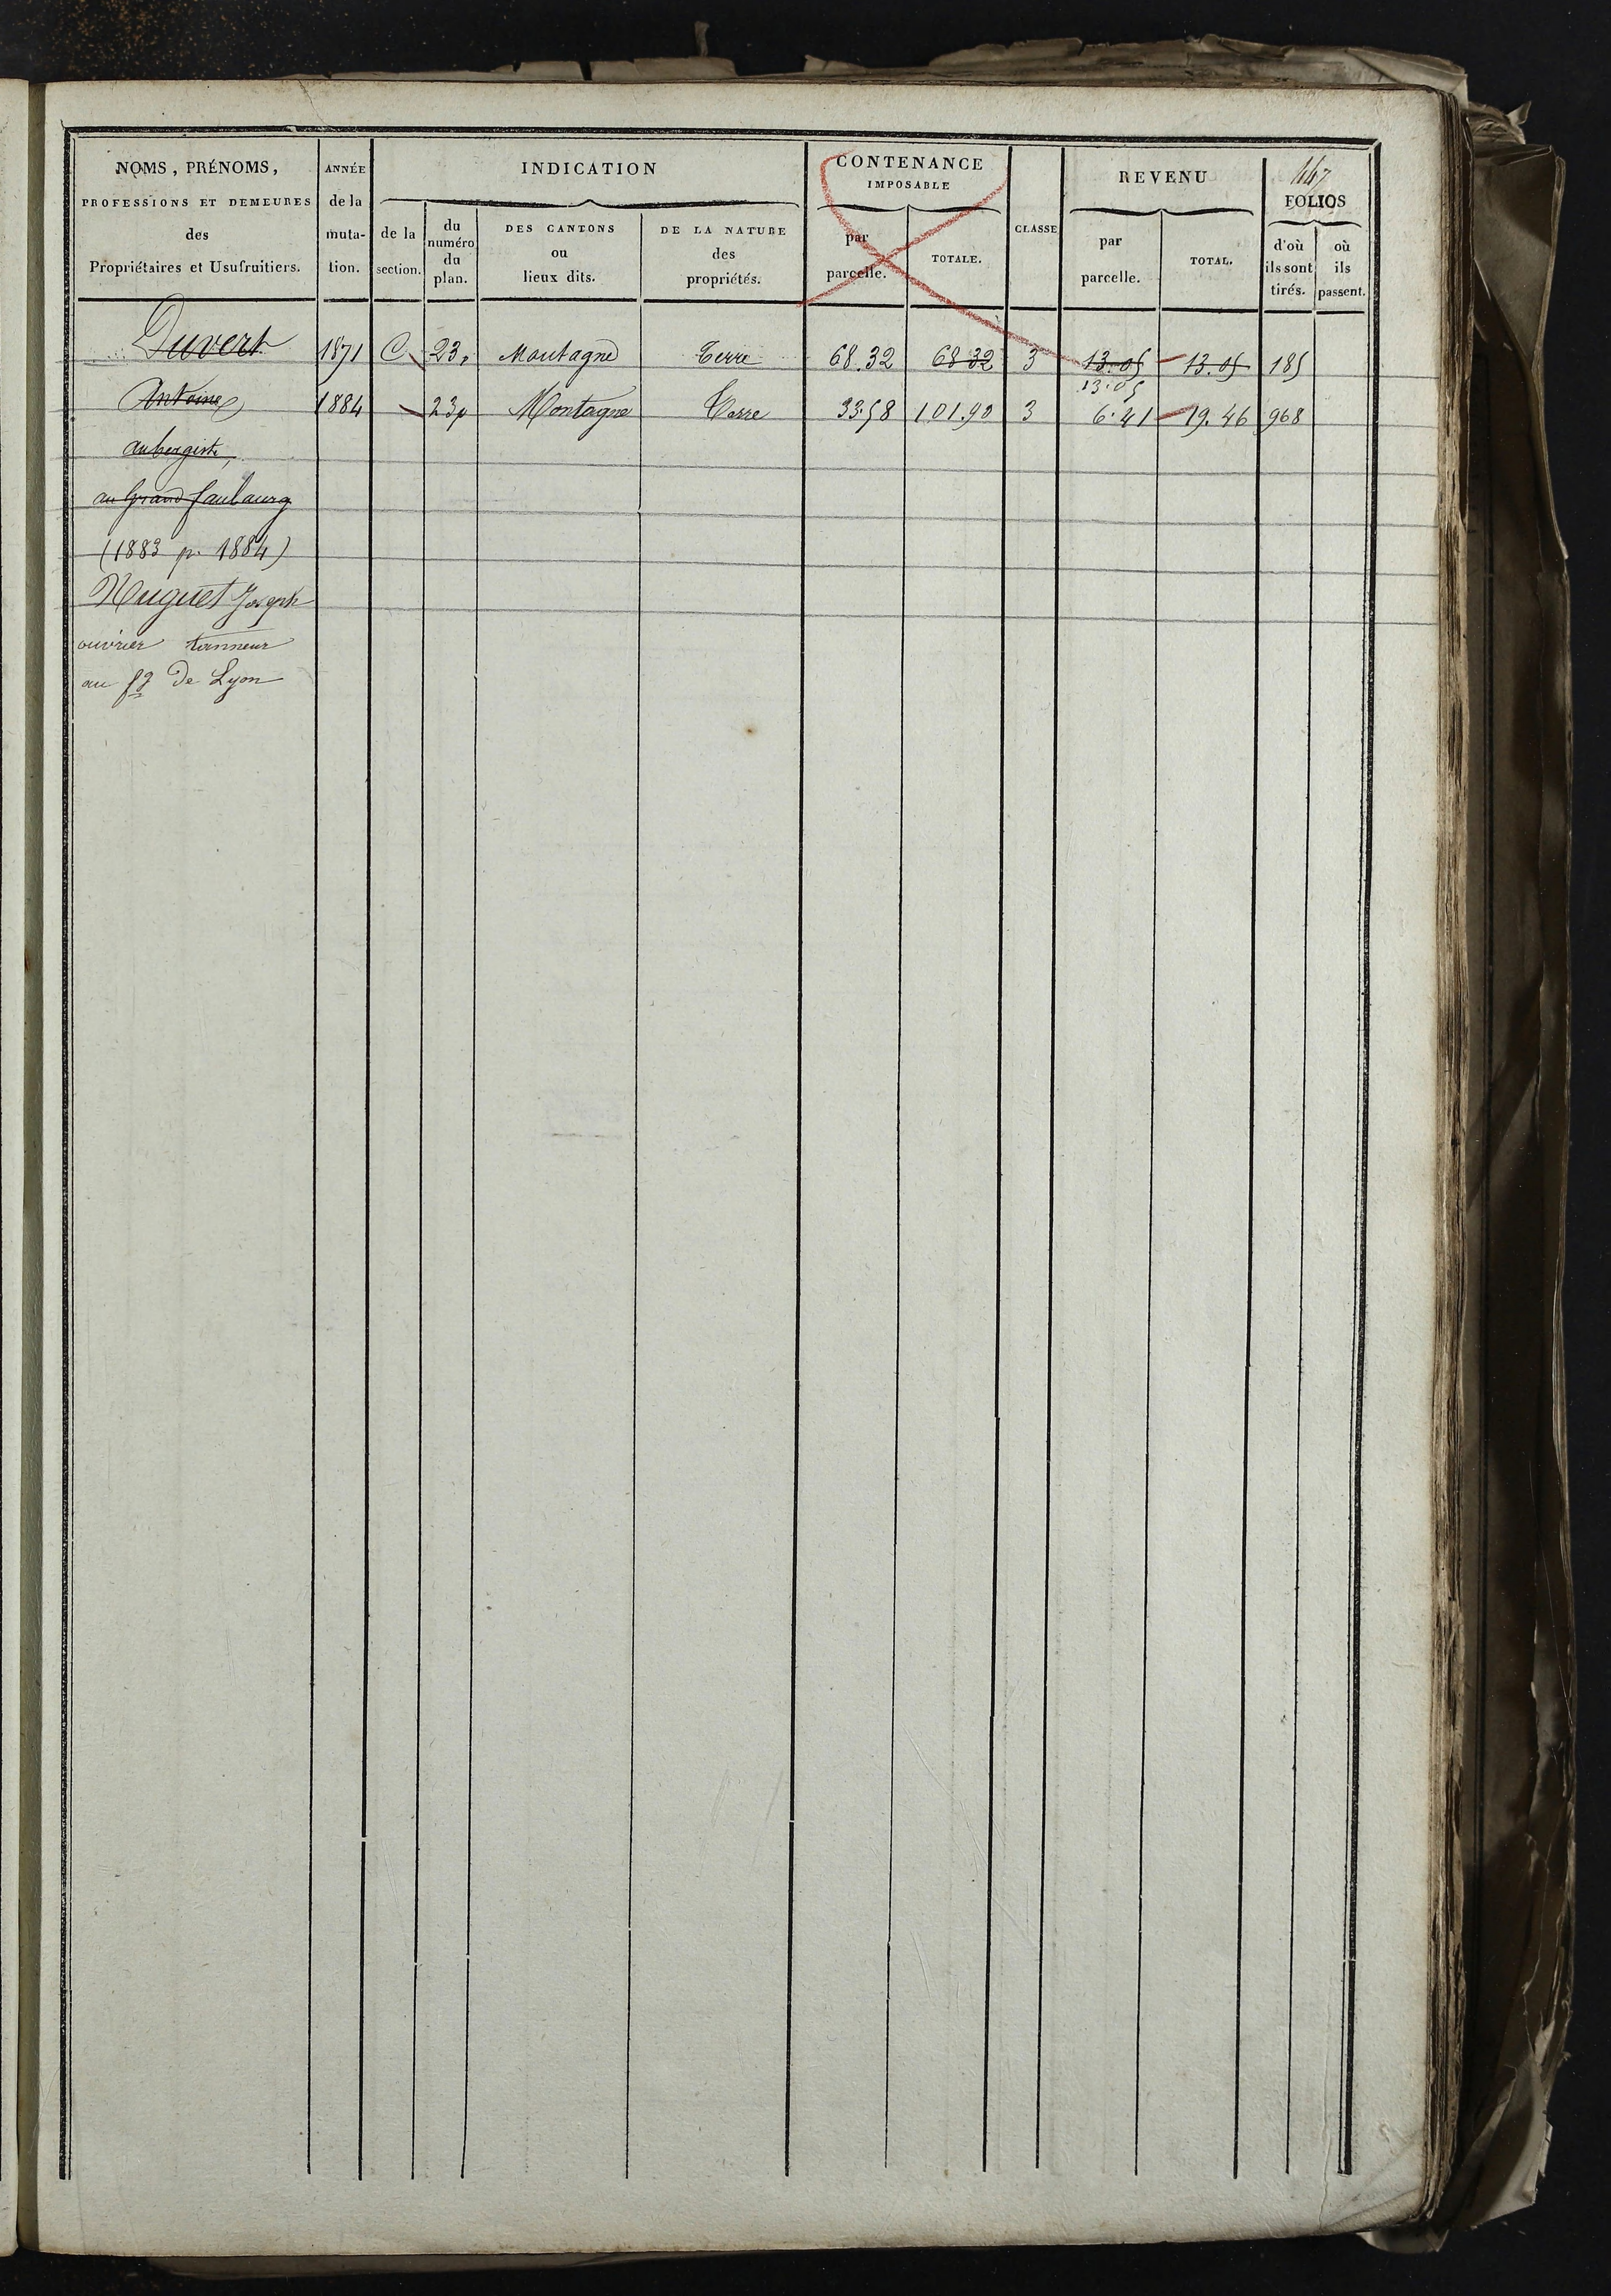 447
NOMS, PRÉNOMS, PROFESSIONS ET DEMEURES des Propriétaires et Usufruitiers.
ANNÉE de la muta- tion.
INDICATION
de la section.
du numéro du plan.
DES CANTONS ou lieux dits.
DE LA NATURE des propriétés.
CONTENANCE IMPOSABLE
par parcelle.
TOTALE.
CLASSE
REVENU
par parcelle.
TOTAL.
FOLIOS
d'où ils sont tirés.
où ils passent.
Duvert 1871 C 23p Montagne Terre 68.32 68 32 3 13.05 13.05 185
13.05
Antoine 1884 23p Montagne Terre 33.58 101.90 3 6.41 19.46 968
aubergiste,
au Grand faubourg
(1883 p. 1884)
Huguet Joseph
ouvrier tanneur
au fg de Lyon